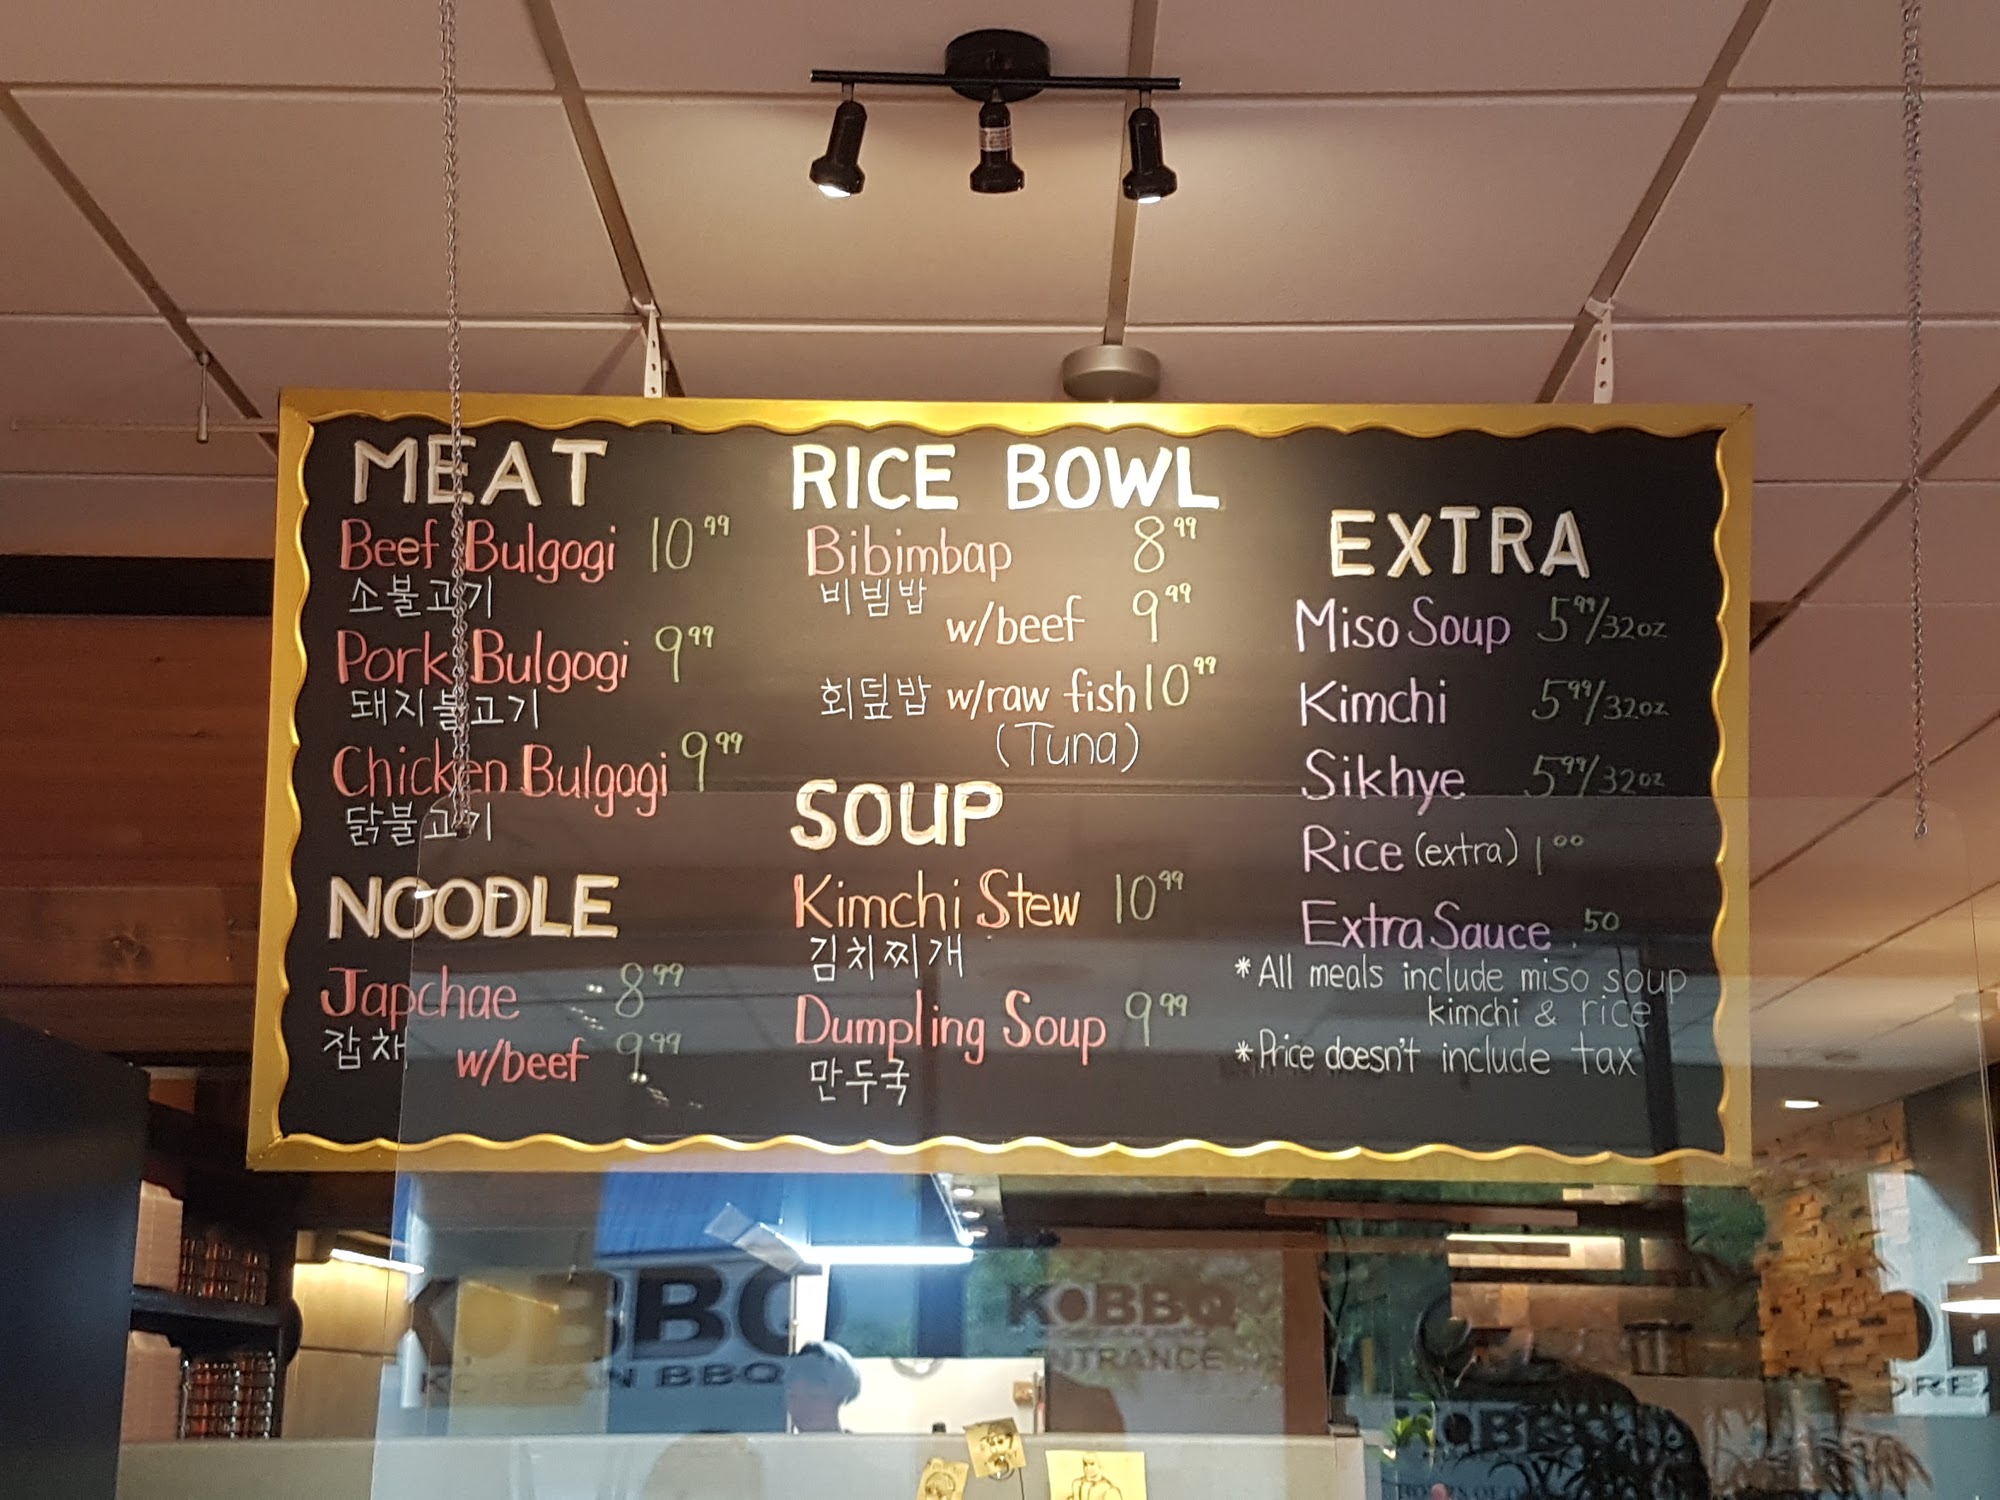 MEAT
Beef Bulgogi 10.99
소불고기
Pork Bulgogi 9.99
돼지불고기
Chicken Bulgogi 9.99
닭불고기
NOODLE
Japchae 8.99
잡채 w/beef 9.99
RICE BOWL
Bibimbap 8.99
비빔밥
w/beef 9.99
회덮밥 w/raw fish 10.99
(Tuna)
SOUP
Kimchi Stew 10.99
김치찌개
Dumpling Soup 9.99
만두국
EXTRA
Miso Soup 5.99/32oz
Kimchi 5.99/32oz
Sikhye 5.99/32oz
Rice (extra) 1.00
Extra Sauce .50
*All meals include miso soup
kimchi & rice
*Price doesn't include tax
KOBBQ
KOREAN BBQ
KOBBQ
ENTRANCE